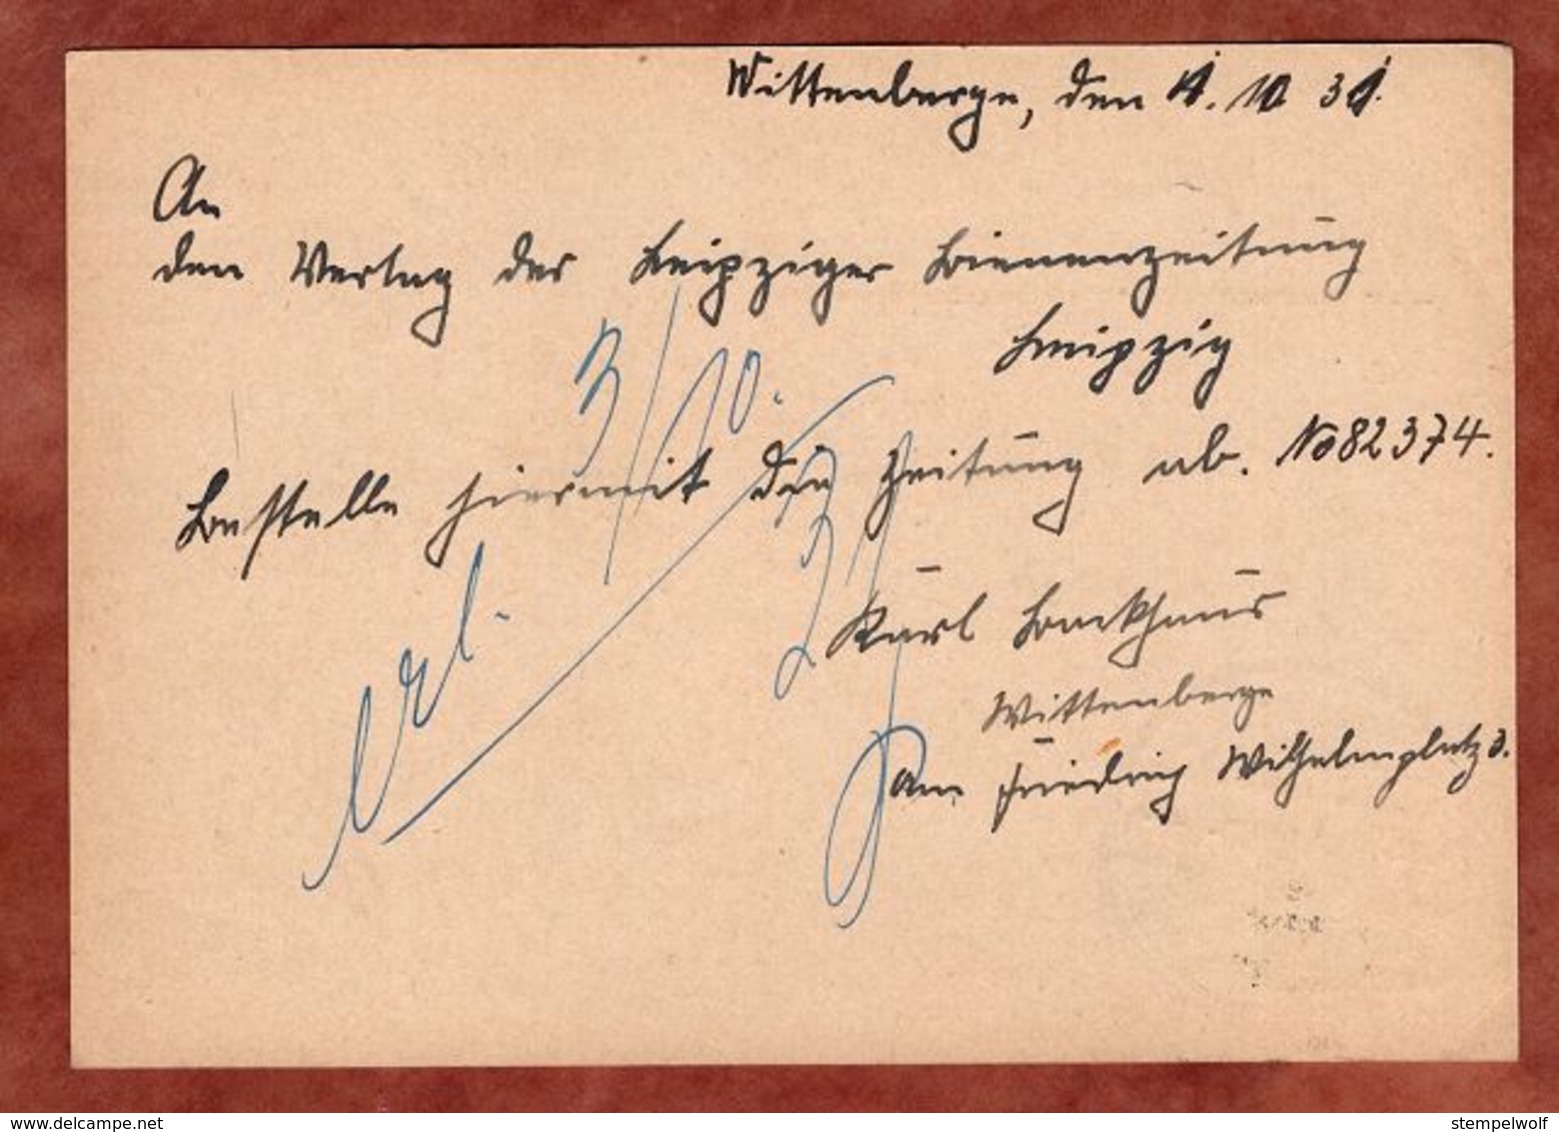 Wittenberge, den 1. 10 31.
An
den Verlag der Leipziger Bienenzeitung
Leipzig
3/10.
Bestelle hiermit die Zeitung ab. No 82374.
erl.
Karl Backhaus
Wittenberge
Am Friedrich Wilhelmplatz 3.
www.delcampe.net
stempelwolf